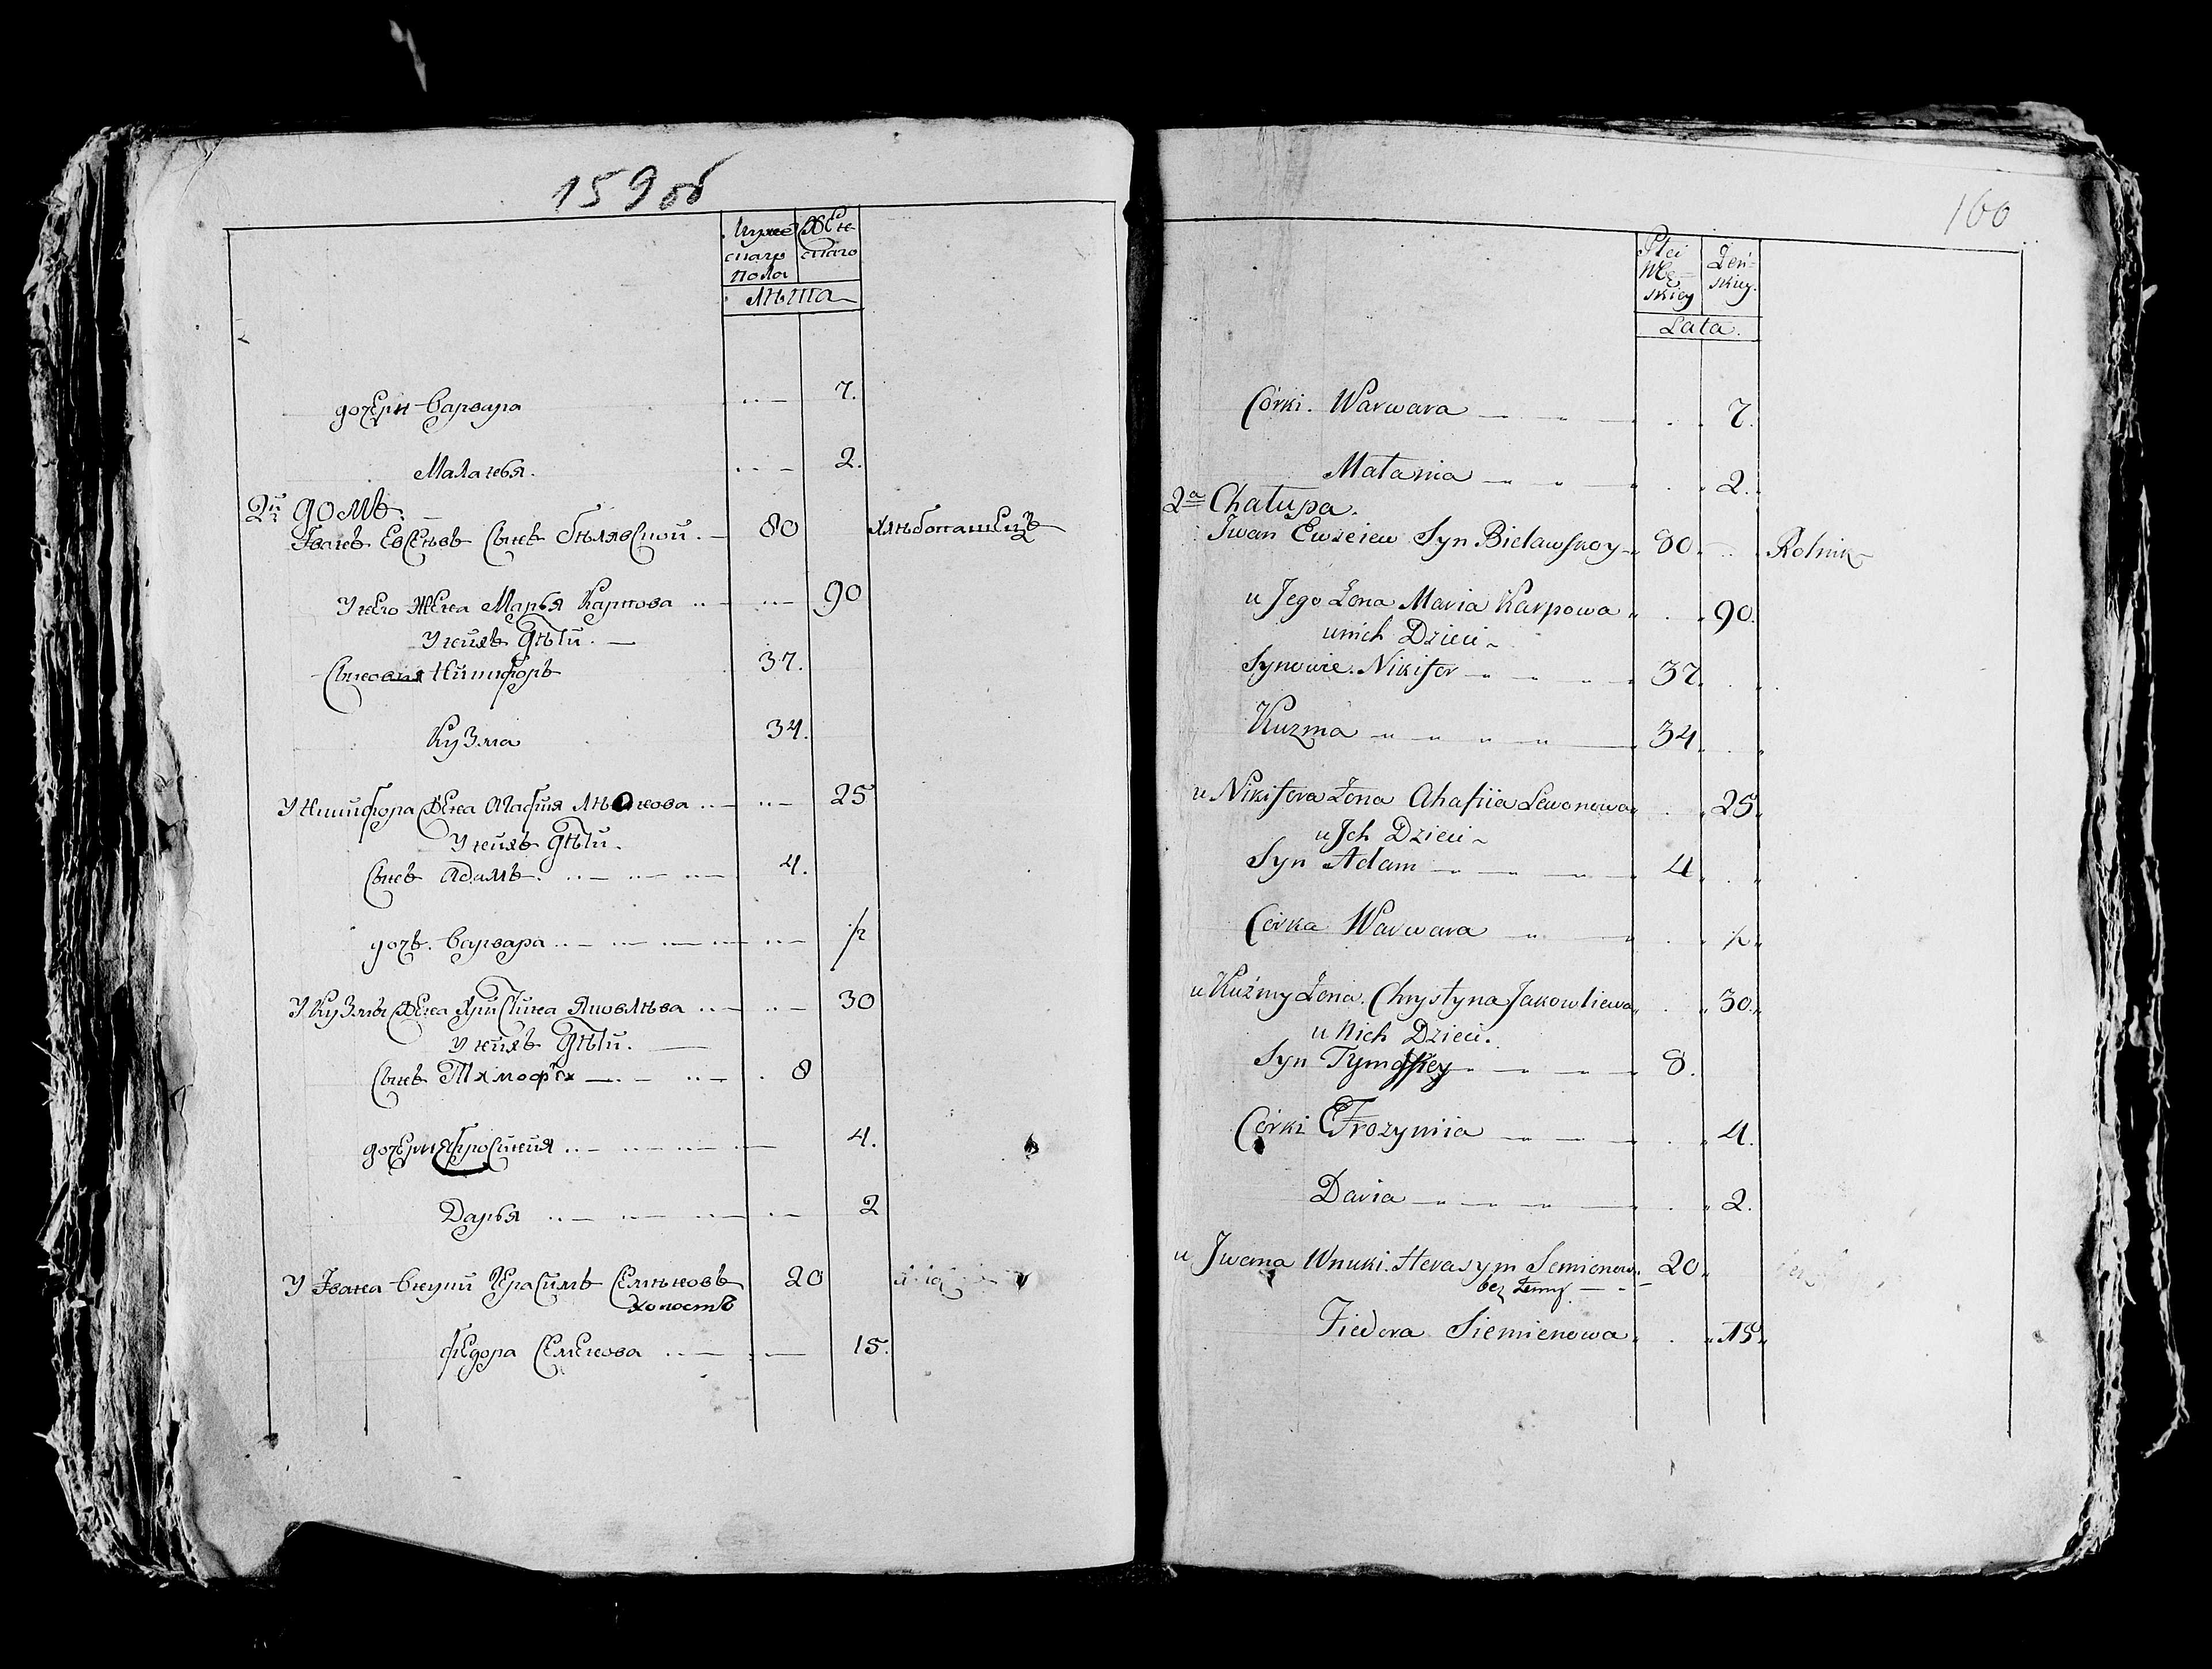 159 об
Мужескаго пола
Женскаго
Лѣта
дочери Варвара .. — 7.
Маланья. .. — 2.
2й домъ.
Іванъ Евсеѣвъ сынъ Бѣлявской. — 80 Хлѣбопашецъ
У него жена Марья Карпова .. — .. — 90
У нихъ дѣти. —
Сыновья Никифоръ 37.
Кузма 34.
У Никифора жена Агафия Лѣонова .. — .. — 25
У нихъ дѣти.
Сынъ Адамъ. .. — .. — .. — 4.
дочь. Варвара .. — .. — .. — .. — ½
У Кузмы жена Христина Яковлѣва .. — .. — 30
У нихъ дѣти. —
Сынъ Тимофѣй — .. — .. — . 8
дочери Ефросиния .. — .. — .. — .. — 4.
Дарья .. — .. — .. — .. — 2
У Івана внуки Герасимъ Семѣновъ 20
холостъ
Федора Семенова .. — .. — 15.
160
Płci Męskiey
Żeńskiey.
Lata.
Córki. Warwara — — — 7.
Małania — — 2.
2a Chałupa.
Iwan Ewzeiew Syn Bielawskoy 80 Rolnik
u Jego Żena Maria Karpowa 90.
u nich Dzieci
Synowie. Nikifor — 37
Kuzma — 34
u Nikifora Żona Ahafiia Lewonowa 25
u Ich Dzieci
Syn Adam — 4
Córka Warwara — ½
u Kuźmy Żena. Chrystyna Jakowliewa 30.
u Nich Dzieci.
Syn Tymofiey — 8.
Córki Efrozyniia — 4.
Daria — 2.
u Iwana Wnuki. Herasym Semionow. 20
bez żenny —
Fiedora Siemienowa 15